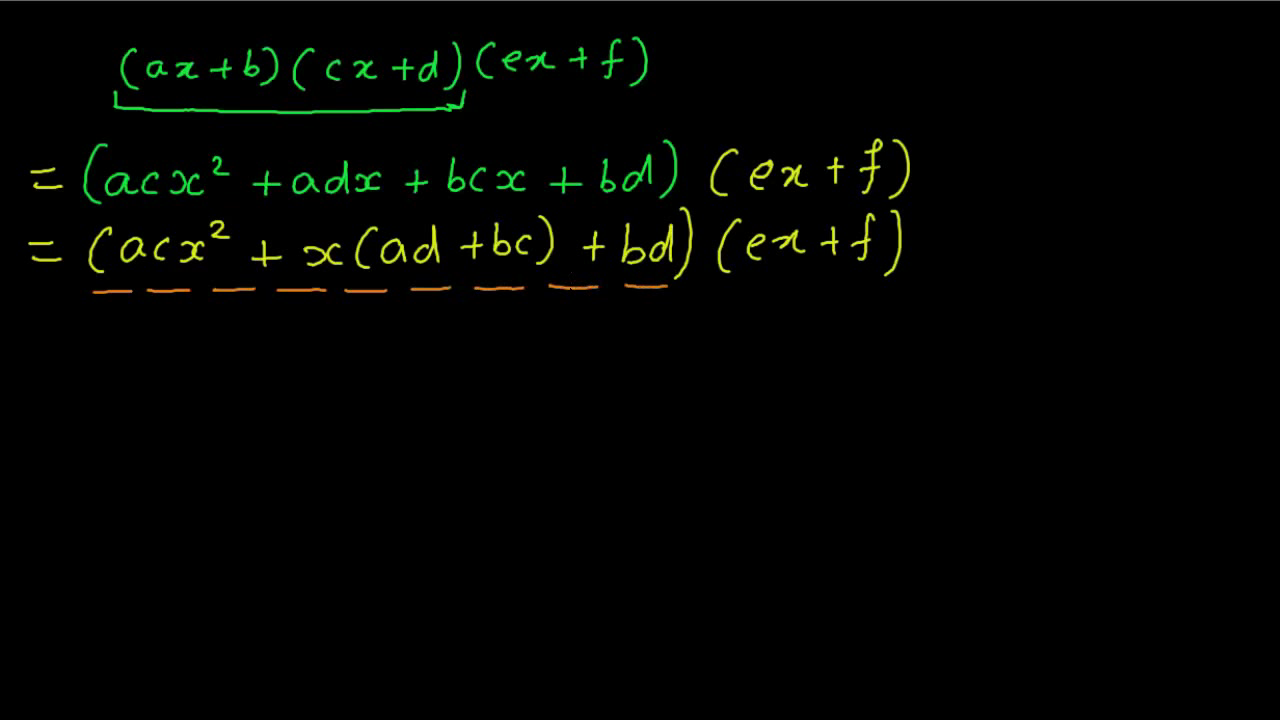 (ax+b)(cx+d)(ex+f)
= (acx² + adx + bcx + bd) (ex + f)
= (acx² + x(ad + bc) + bd) (ex + f)